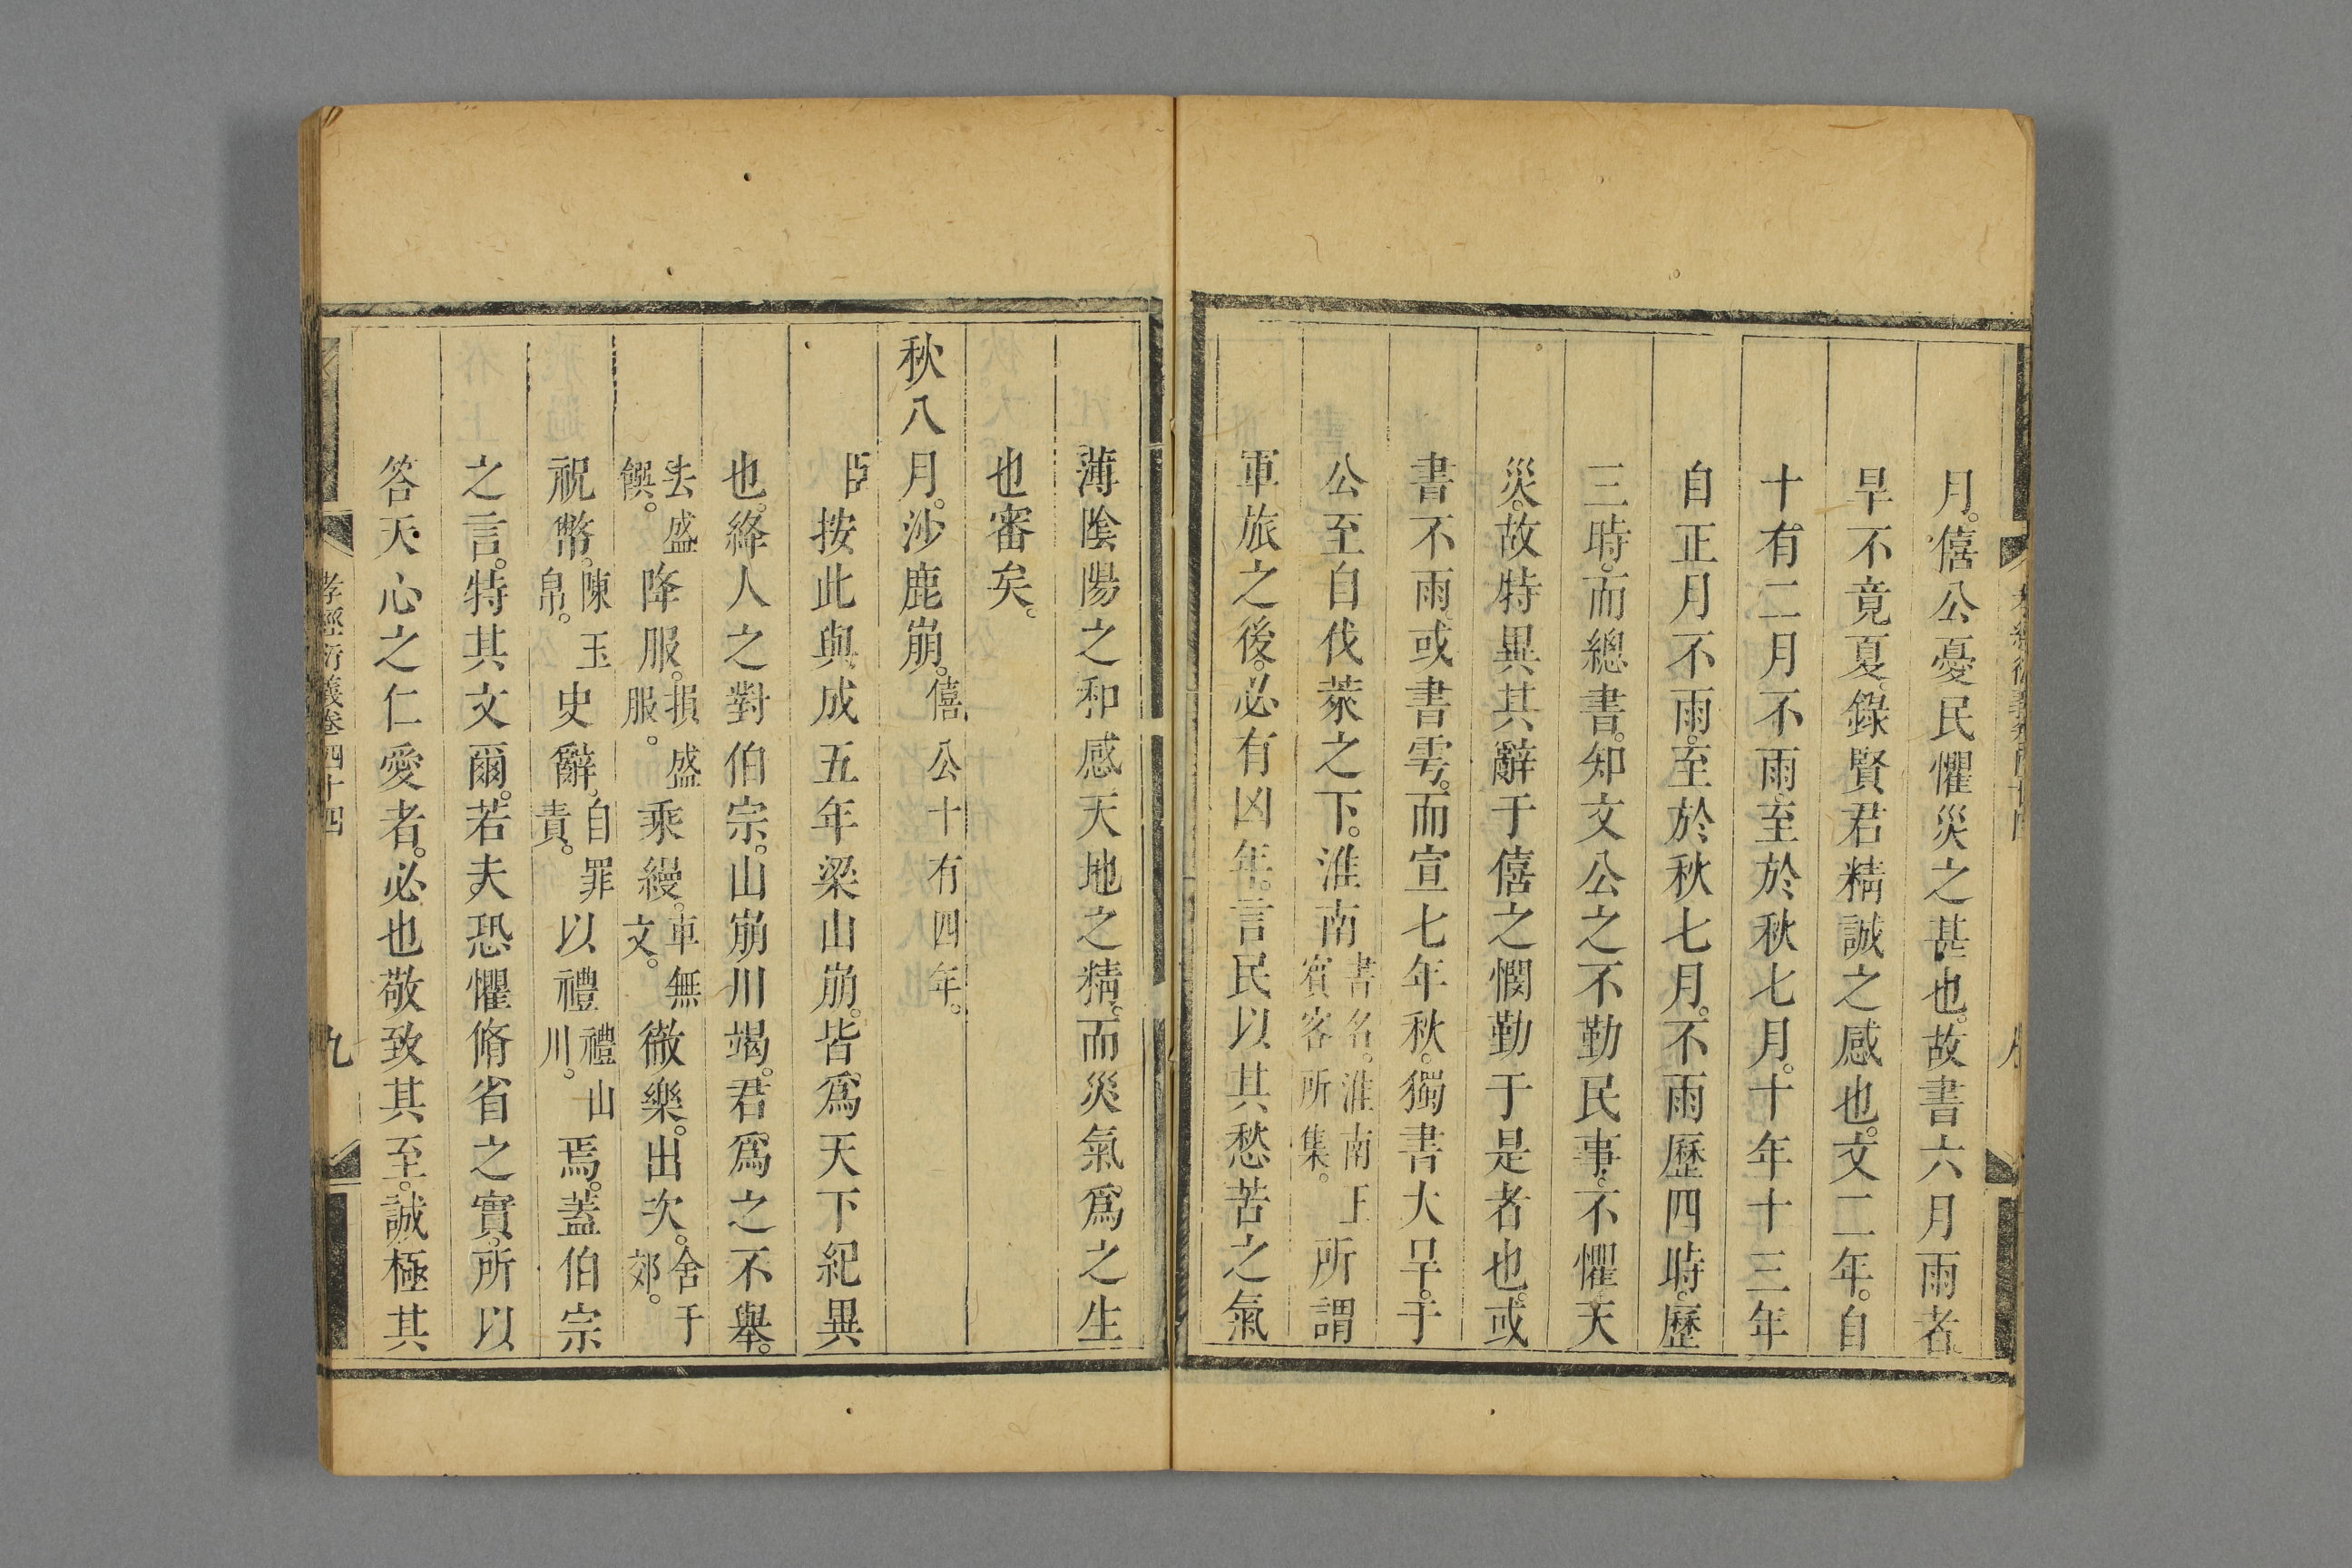 月。僖公憂民懼災之甚也。故書六月雨者。
旱不竟夏。錄賢君精誠之感也。文二年。自
十有二月不雨。至於秋七月。十年十三年
自正月不雨。至於秋七月。不雨歷四時。歷
三時。而總書。知文公之不勤民事。不懼天
災。故特異其辭于僖之憫勤于是者也。或
書不雨。或書雩。而宣七年秋。獨書大旱。于
公至自伐萊之下。淮南書名。淮南王賓客所集。所謂
軍旅之後。必有凶年。言民以其愁苦之氣
薄陰陽之和。感天地之精。而災氣爲之生
也審矣。
秋八月。沙鹿崩。僖公十有四年。
臣按此與成五年梁山崩。皆爲天下紀異
也。絳人之對伯宗。山崩川竭。君爲之不舉。
去盛饌。降服。損盛服。乘縵。車無文。徹樂。出次。舍于郊。
祝幣。陳玉帛。史辭。自罪責。以禮禮山川。焉。蓋伯宗
之言。特其文爾。若夫恐懼脩省之實。所以
答天心之仁愛者。必也敬致其至。誠極其
孝經衍義卷四十四
九